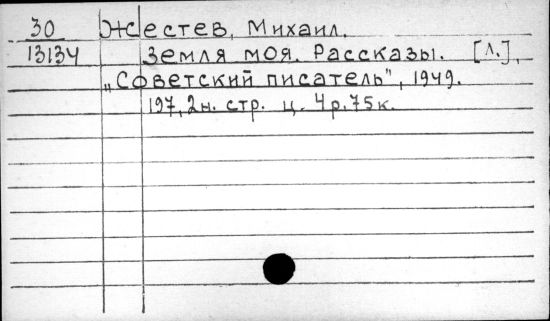 30 Жестев, Михаил.
13134 Земля моя. Рассказы. [Л.],
„Советский писатель", 1949.
197, 2н. стр. ц. 4р.75к.